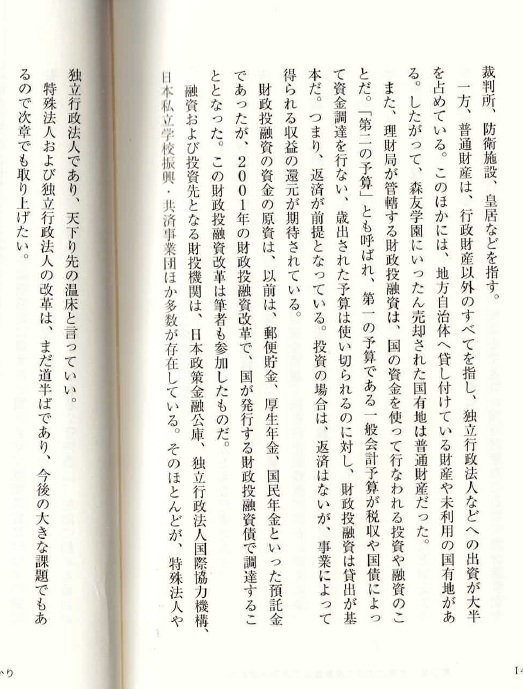 裁判所、防衛施設、皇居などを指す。
一方、普通財産は、行政財産以外のすべてを指し、独立行政法人などへの出資が大半
を占めている。このほかには、地方自治体へ貸し付けている財産や未利用の国有地があ
る。したがって、森友学園にいったん売却された国有地は普通財産だった。
また、理財局が管轄する財政投融資は、国の資金を使って行なわれる投資や融資のこ
とだ。「第二の予算」とも呼ばれ、第一の予算である一般会計予算が税収や国債によっ
て資金調達を行ない、歳出された予算は使い切られるのに対し、財政投融資は貸出が基
本だ。つまり、返済が前提となっている。投資の場合は、返済はないが、事業によって
得られる収益の還元が期待されている。
財政投融資の資金の原資は、以前は、郵便貯金、厚生年金、国民年金といった預託金
であったが、2001年の財政投融資改革で、国が発行する財政投融資債で調達するこ
ととなった。この財政投融資改革は筆者も参加したものだ。
融資および投資先となる財投機関は、日本政策金融公庫、独立行政法人国際協力機構、
日本私立学校振興・共済事業団ほか多数が存在している。そのほとんどが、特殊法人や
独立行政法人であり、天下り先の温床と言っていい。
特殊法人および独立行政法人の改革は、まだ道半ばであり、今後の大きな課題でもあ
るので次章でも取り上げたい。